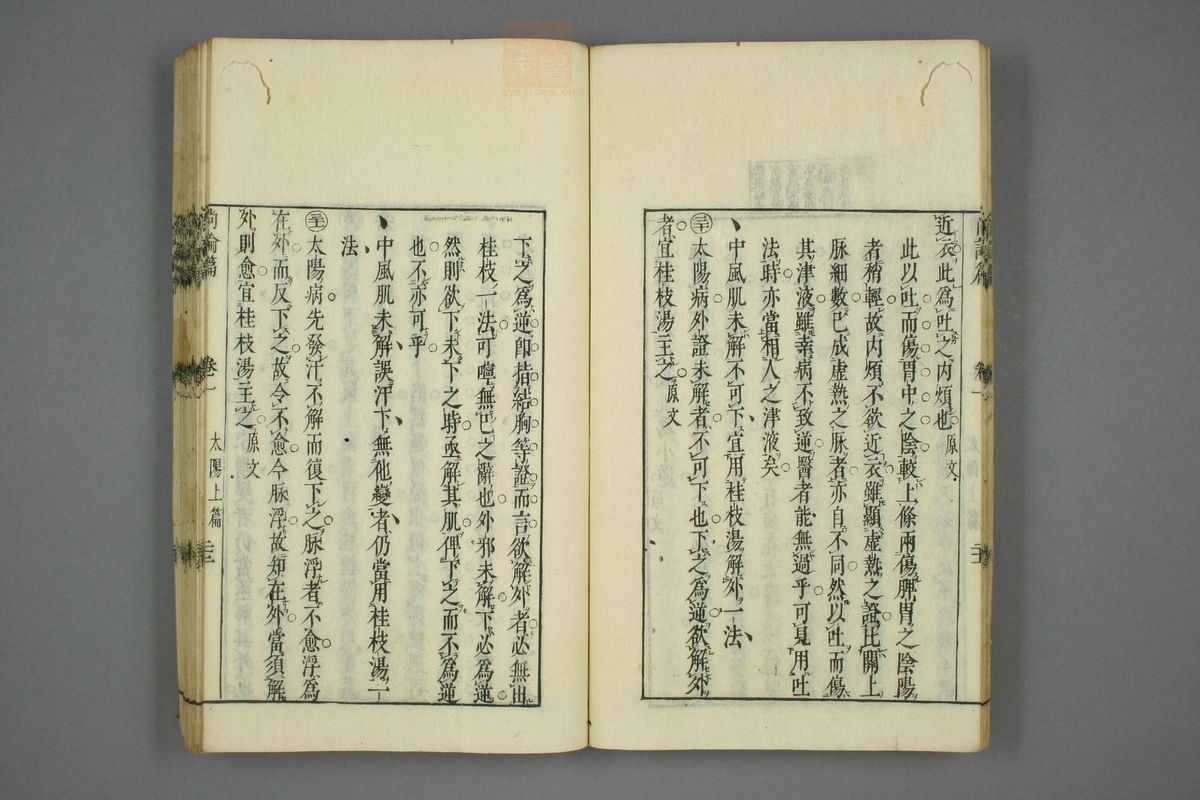 近衣此為吐之内煩也原文
此以吐而傷胃中之陰較上條兩傷脾胃之陰陽
者稍輕故内煩不欲近衣雖顯虛熱之證比關上
脉細數已成虛熱之脉者亦自不同然以吐而傷
其津液雖幸病不致逆醫者能無過乎可見用吐
法時亦當相人之津液矣
中風肌未解不可下宜用桂枝湯解外一法
太陽病外證未解者不可下也下之為逆欲解外
者宜桂枝湯主之原文
下之為逆即指結胸等證而言欲解外者必無出
桂枝一法可噫無已之辭也外邪未解下必為逆
然則欲下未下之時亟解其肌俾下之而不為逆
也不亦可乎
中風肌未解誤汗下無他變者仍當用桂枝湯一
法
太陽病先發汗不解而復下之脉浮者不愈浮為
在外而反下之故令不愈今脉浮故知在外當須解
外則愈宜桂枝湯主之原文
尚論篇
卷一
太陽上篇
zysj.com.cn